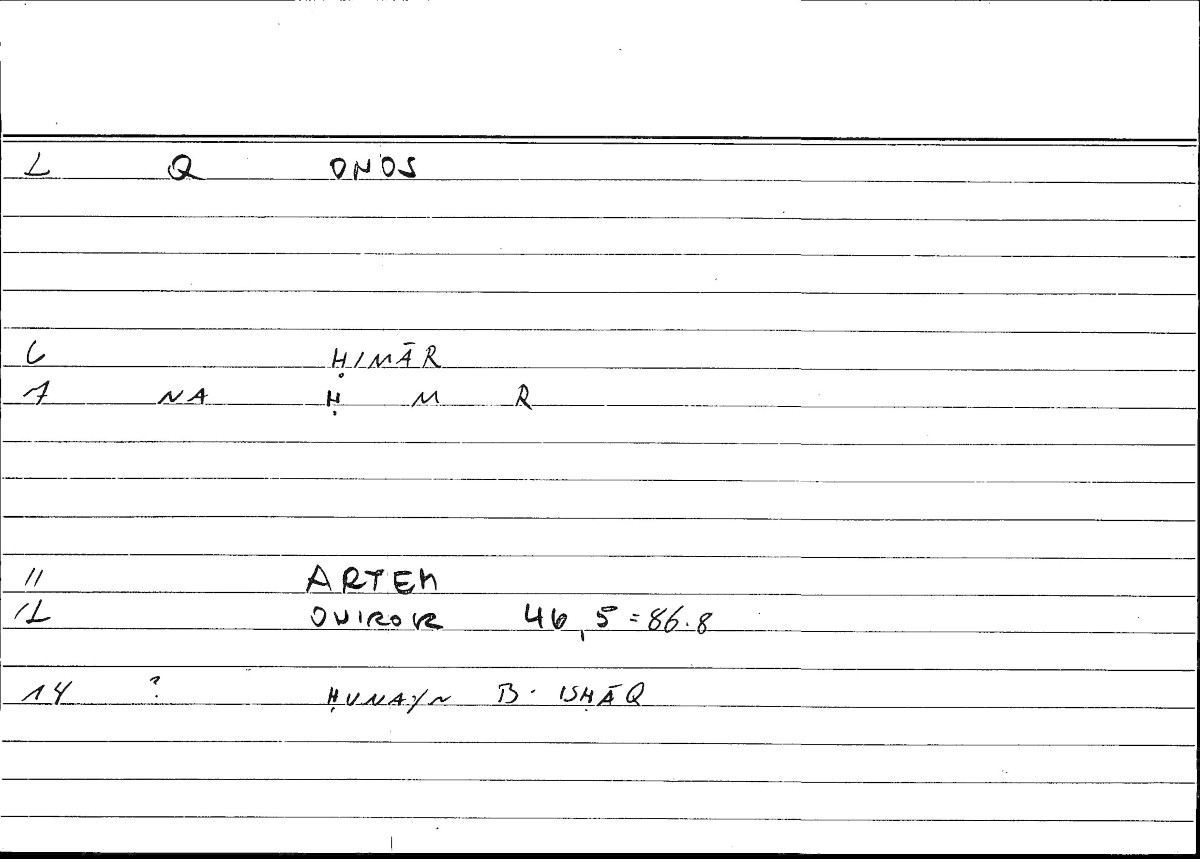 2 Q ONOS
6 ḤIMĀR
7 NA Ḥ M R
11 ARTEM
12 ONIROK 46,5=86.8
14 ? ḤUNAYN B. ISḤĀQ